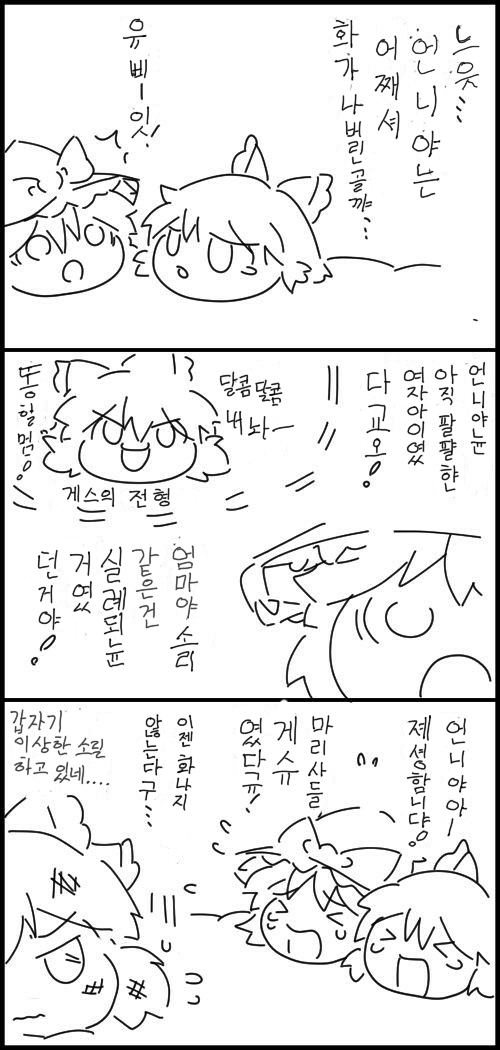 느읏...
언니야는
어째셔
화가 나버린골까...
유삐ー잇!
언니야뉸
아직 팔팔햔
여자아이였
다교오!
달콤달콤
내놔ー
똥할멈!
게스의 전형
엄마야 소리
같은건
실례되뉸
거였
던거야!
언니야아ー
졔셩합니댜!
마리사들
게슈
였댜규!
이젠 화나지
않는다구...
갑자기
이상한 소릴
하고 있네....